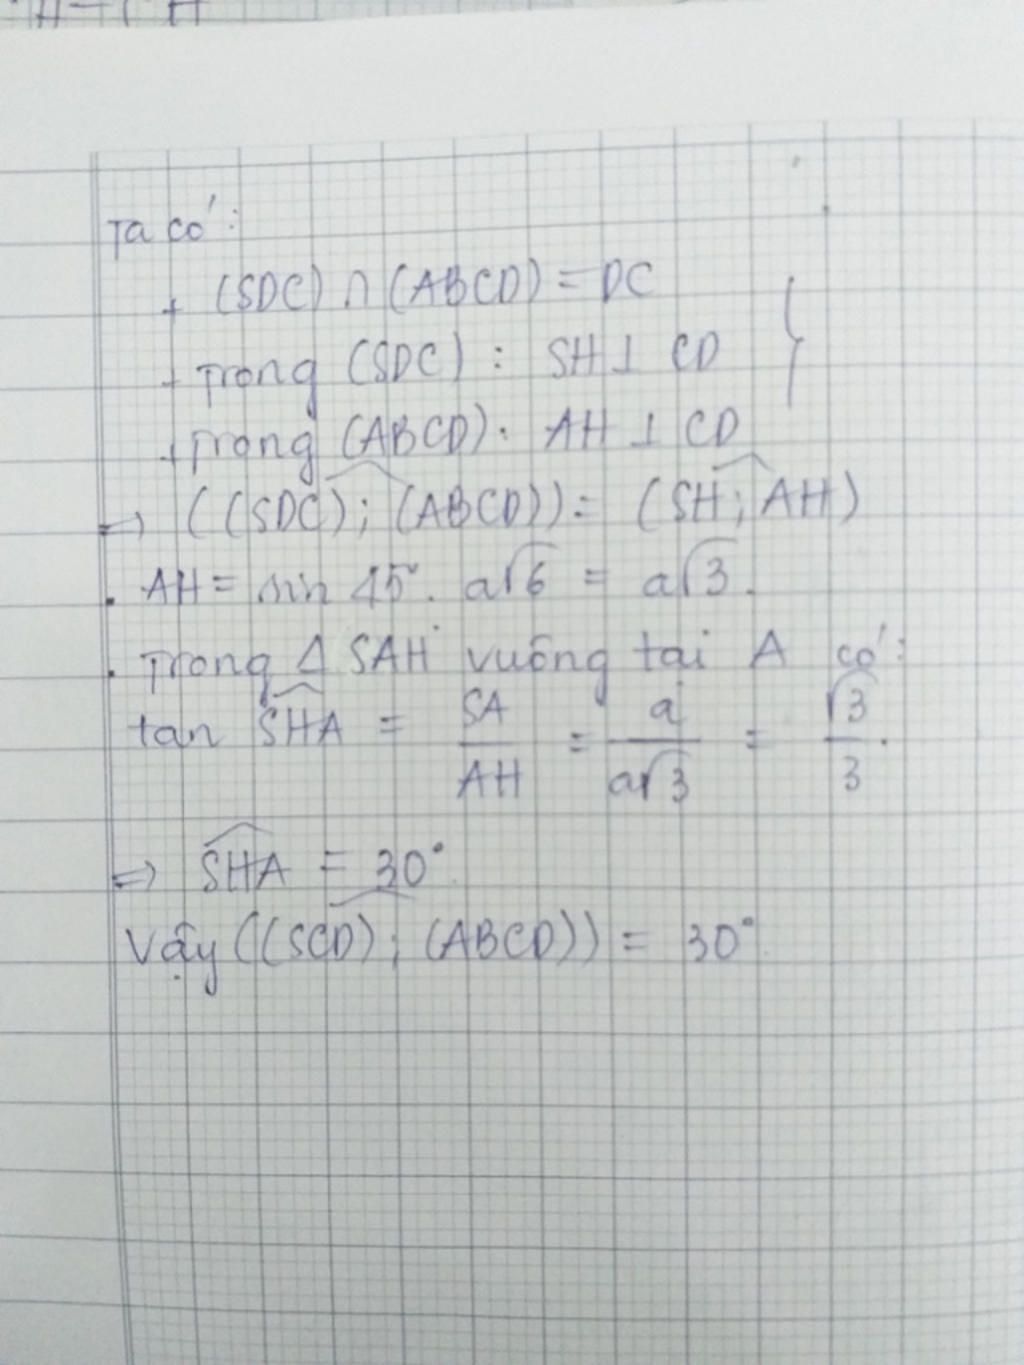 Ta có:
+ (SDC) ∩ (ABCD) = DC
+ Trong (SDC) : SH ⊥ CD
+ Trong (ABCD) : AH ⊥ CD
=> ((SDC) ; (ABCD)) = (SH ; AH)
. AH = sin 45°. a√6 = a√3.
. Trong Δ SAH vuông tại A có:
tan SHA = SA/AH = a/a√3 = √3/3.
=> SHA = 30°.
Vậy ((SCD) ; (ABCD)) = 30°.